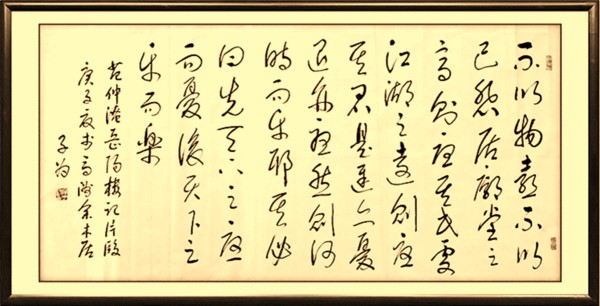 不以物喜不以
己悲居廟堂之
高則憂其民處
江湖之遠則憂
其君是進亦憂
退亦憂然則何
時而乐耶其必
曰先天下之憂
而憂後天下之
乐而樂
范仲淹岳陽楼记片段
庚子夏书木居
子为